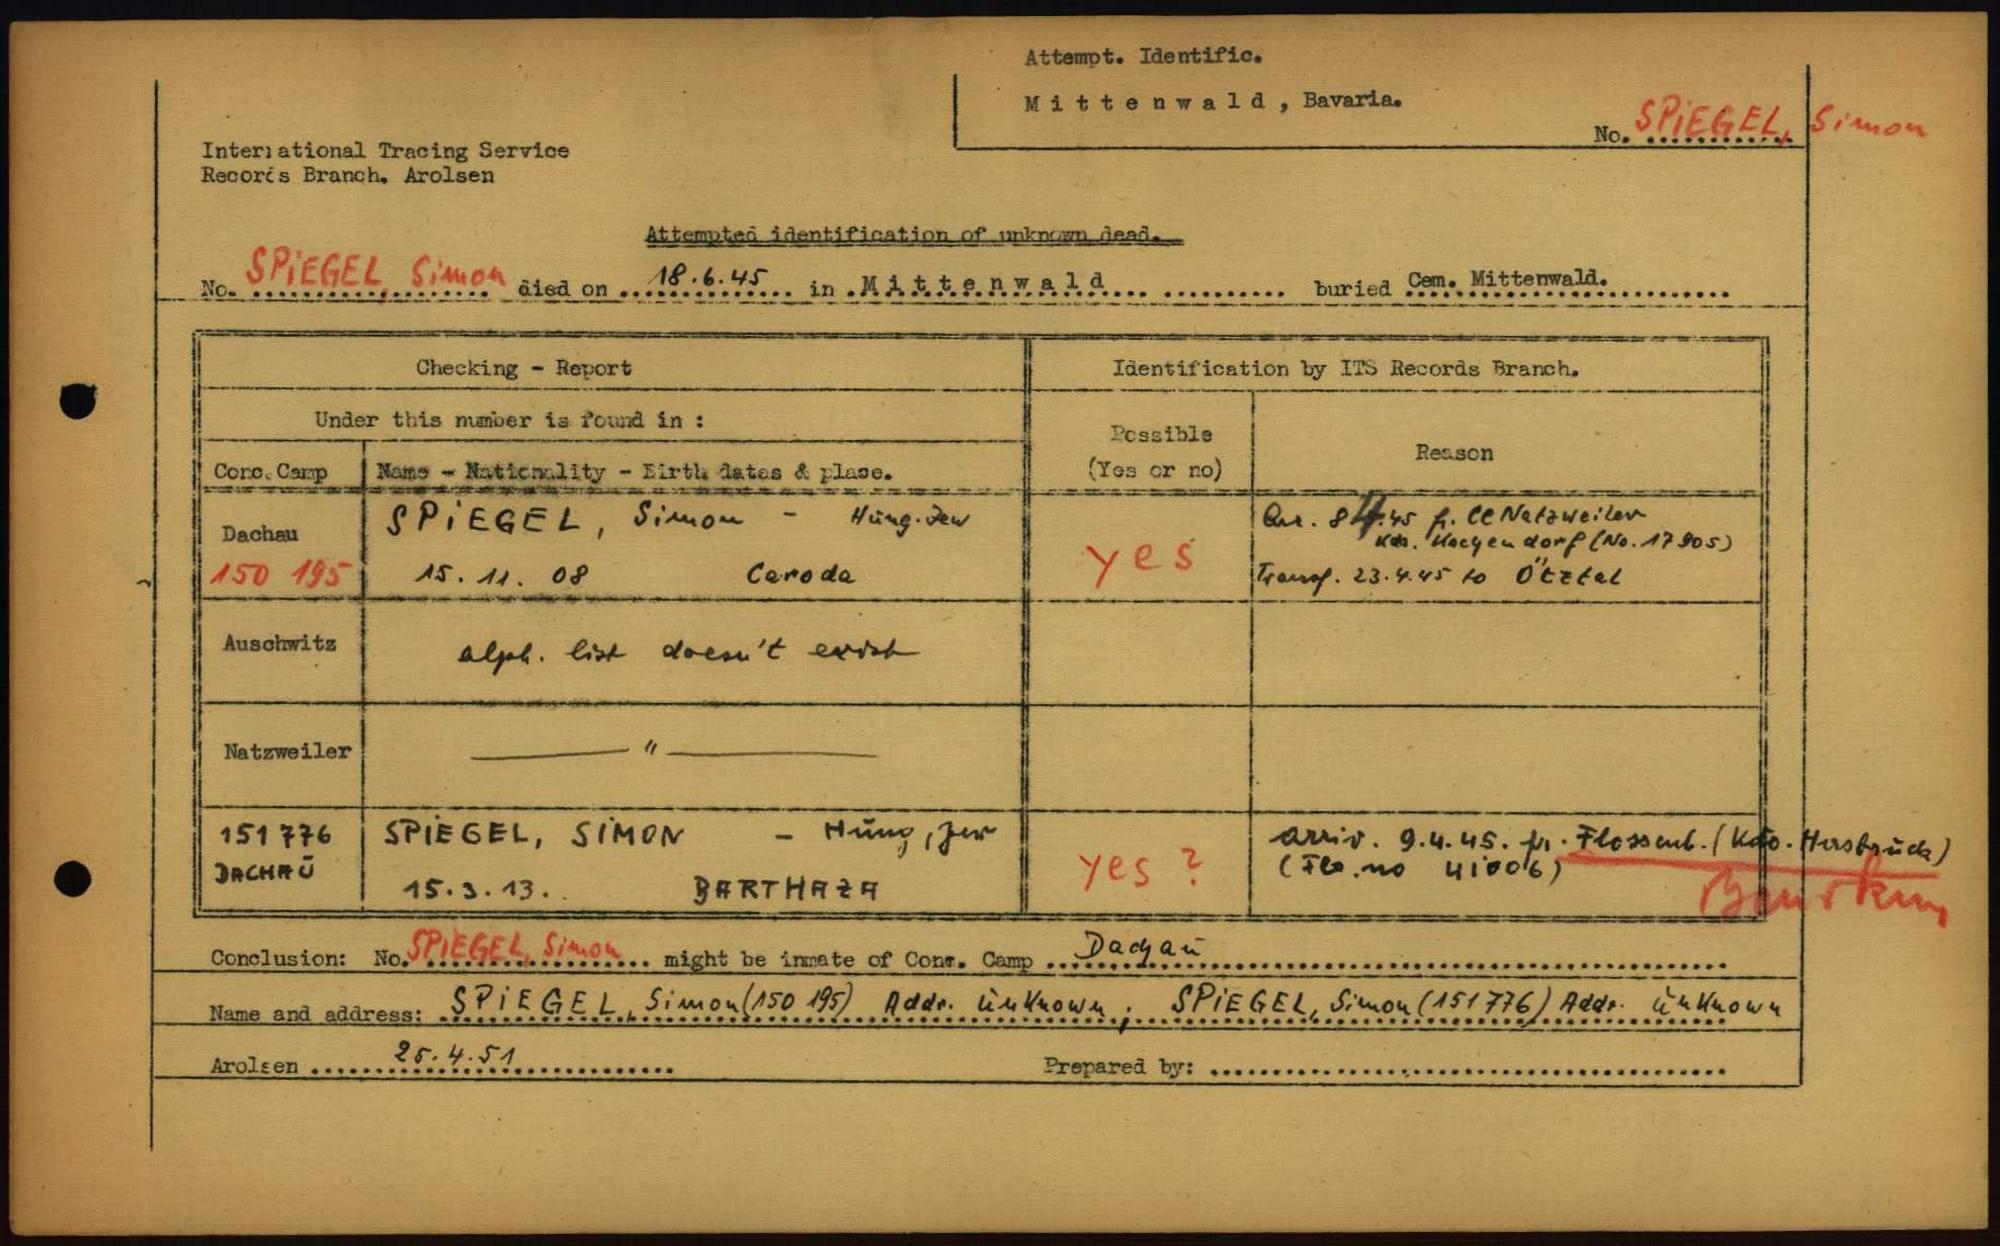 Attempt. Identific.
Mittenwald, Bavaria.
No. SPIEGEL, Simon
International Tracing Service
Records Branch. Arolsen
Attempted identification of unknown dead.
No. SPIEGEL, Simon died on 18.6.45 in Mittenwald buried Cem. Mittenwald.
Checking - Report
Identification by ITS Records Branch.
Under this number is found in :
Possible
(Yes or no)
Reason
Conc. Camp
Name - Nationality - Birth dates & place.
Dachau
150 195
SPIEGEL, Simon - Hung. Jew
15. 11. 08 Caroda
yes
Arr. 8.4.45 fr. CC Natzweiler
Kdo. Kochendorf (No. 17905)
Transf. 23.4.45 to Ötztal
Auschwitz
alph. list doesn't exist
Natzweiler
— " —
151776
DACHAU
SPIEGEL, SIMON - Hung, Jew
15.3.13. BARTHAZA
yes ?
arriv. 9.4.45. fr. Flossenb. (Kdo. Hersbruck)
(Flo. no 41006)
Conclusion: No. SPIEGEL, Simon might be inmate of Conc. Camp Dachau
Name and address: SPIEGEL, Simon (150 195) Addr. unknown ; SPIEGEL, Simon (151776) Addr. unknown
Arolsen 25.4.51
Prepared by: